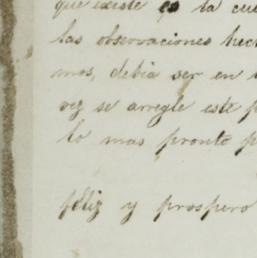 que existe en la cue
las observaciones hec
mos, debia ser en
vez se arregle este p
lo mas pronto p
feliz y prospero